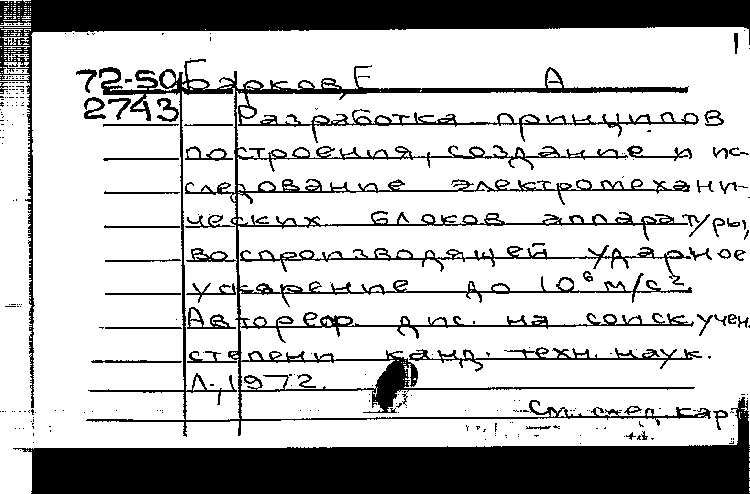 1
72-50 Барков, Е А
2743 Разработка принципов
построения, создание и ис-
следование электромехани-
ческих блоков аппаратуры,
воспроизводящей ударное
ускорение до 10⁶ м/с².
Автореф. дис. на соиск. учен.
степени канд. техн. наук.
Л., 1972.
См. след. карт